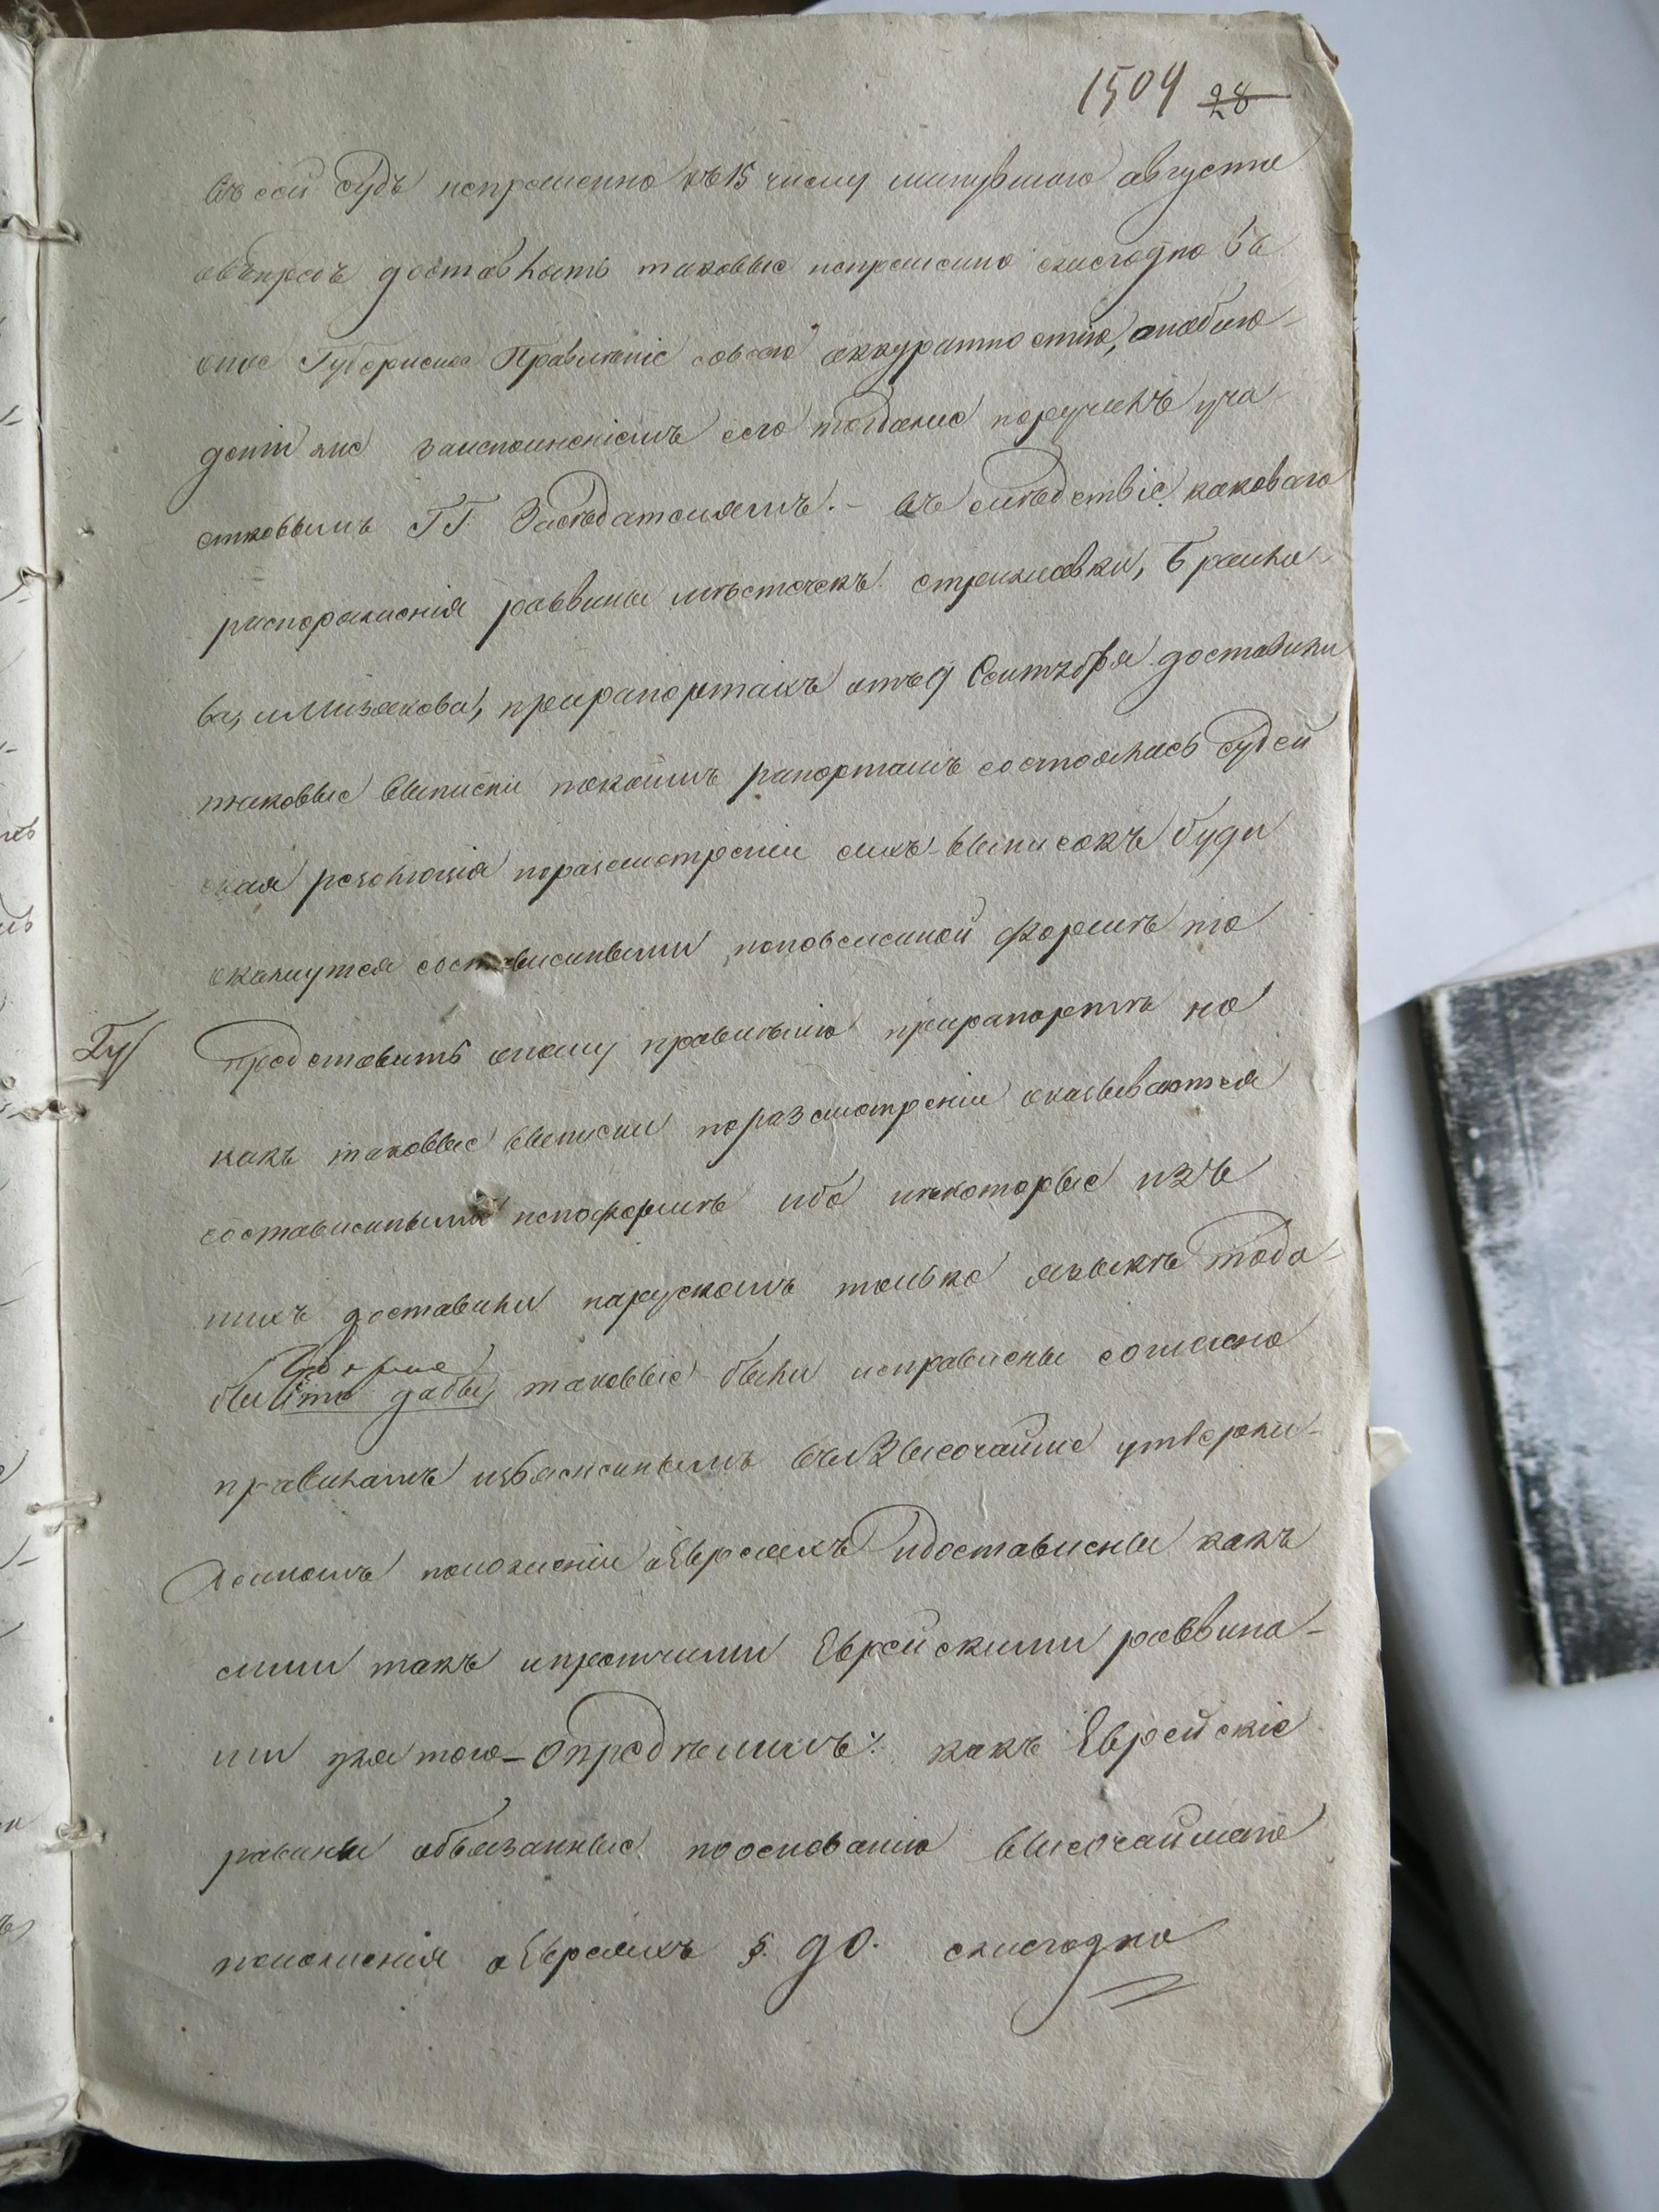 1504 28
въ сей судъ непременно къ 15 числу минувшаго августа
авъпредъ доставлять таковые непременно ежегодно въ
оное Губернское Правленіе совсею аккуратностію, анаблю-
деніи же заисполненіемъ сего тогдаже порученъ уча-
стковымъ ГГ. Заседателямъ. - въ следствіе каковаго
распоряженія раввины месточекъ Стрижавки, Браило-
ва, иМизякова, прирапортахъ отъ 9 Сентября доставили
таковые выписки покоимъ рапортамъ состоялась судей
ская резолюція поразсмотреніи сихъ выписокъ буди
окажутся составленными поповеленной форме то
Гу/ Представить оному правленію прирапорте но
какъ таковые выписки поразсмотреніи оказываются
составленными непоформе ибо некоторые изъ
нихъ доставили нарускомъ только языке тода-
бы что дабы таковые были исправлены согласно
правиламъ изъясненнымъ въ Высочайше утверж-
денномъ положеніи оЕвреяхъ идоставлены какъ
сими такъ ипрочими Еврейскими раввина-
ми для того - Определилъ: какъ Еврейскіе
равины обязанные пооснованію высочайшаго
положенія оЕвреяхъ §. 90. ежегодно